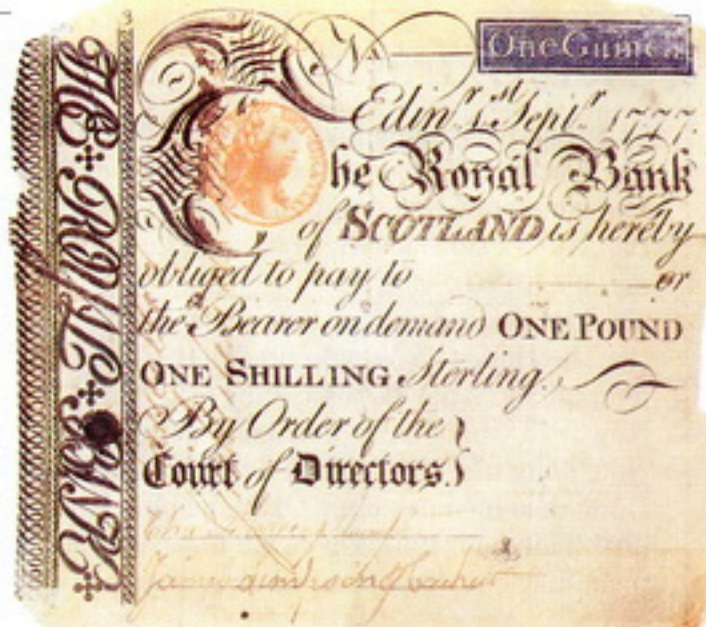 THE ROYAL BANK
No
One Guinea
Edinr. 1st Septr. 1777.
The Royal Bank
of SCOTLAND is hereby
obliged to pay to or
the Bearer on demand ONE POUND
ONE SHILLING Sterling.
By Order of the
Court of Directors.
James